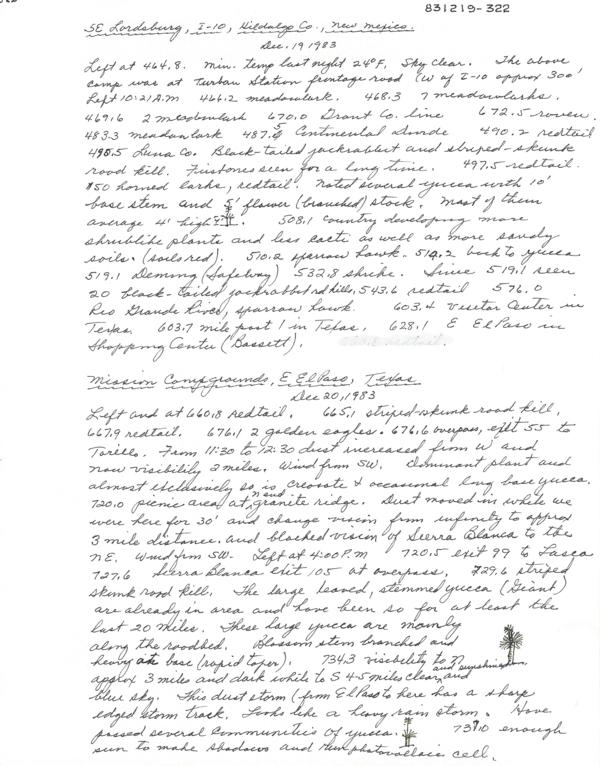 831219-322
SE Lordsburg, I-10, Hidalgo Co., New Mexico.
Dec. 19 1983
Left at 464.8. Min. temp last night 24°F, Sky clear. The above
camp was at Turban Station frontage road (W of I-10 approx 300'
Left 10:21 A.M 466.2 meadowlark. 468.3 7 meadowlarks.
469.6 2 meadowlark 670.0 Grant Co. line 672.5 raven.
483.3 meadowlark 487.5 Continental Divide 490.2 redtail
495.5 Luna Co. Black-tailed jackrabbit and striped-skunk
road kill. First ones seen for a long time. 497.5 redtail.
50 horned larks, redtail. Noted several yucca with 10'
base stem and 5' flower (branched) stock. Most of them
average 4' high. 508.1 country developing more
shrublike plants and less cacti as well as more sandy
soils. (soils red). 510.2 sparrow hawk. 514.2 back to yucca
519.1 Deming (Safeway) 532.8 shrike. Since 519.1 seen
20 black-tailed jackrabbit rd kills, 543.6 redtail 576.0
Rio Grande River, sparrow hawk. 603.4 Visitor Center in
Texas. 603.7 mile post 1 in Texas. 628.1 E El Paso in
Shopping Center (Bassett).
Mission Campgrounds, E El Paso, Texas
Dec 20, 1983
Left and at 660.8 redtail. 665.1 striped-skunk road kill,
667.9 redtail. 676.1 2 golden eagles. 676.6 overpass, exit 55 to
Tornillo. From 11:30 to 12:30 dust increased from W and
now visibility 3 miles. Wind from SW. Dominant plant and
almost exclusively so is creosote & occasional long base yucca.
720.0 picnic area at granite ridge. Dust moved in while we
were here for 30' and change vision from infinity to approx
3 mile distance. and blocked vision of Sierra Blanca to the
NE. Wind from SW. Left at 4:00 P.M 720.5 exit 99 to Lasca
727.6 Sierra Blanca exit 105 at overpass. 729.6 striped
skunk road kill. The large leaved, stemmed yucca (Giant)
are already in area and have been so for at least the
last 20 miles. These large yucca are mainly
along the roadbed. Blossom stem branched and
heavy at base (rapid taper). 734.3 visibility to N
approx 3 miles and dark while to S 4-5 miles clear, and and sunshine
blue sky. This dust storm (from El Paso to here has a sharp
edged storm track. Looks like a heavy rain storm. Have
passed several communities of yucca. enough
sun to make shadows and run photovoltaic cell.